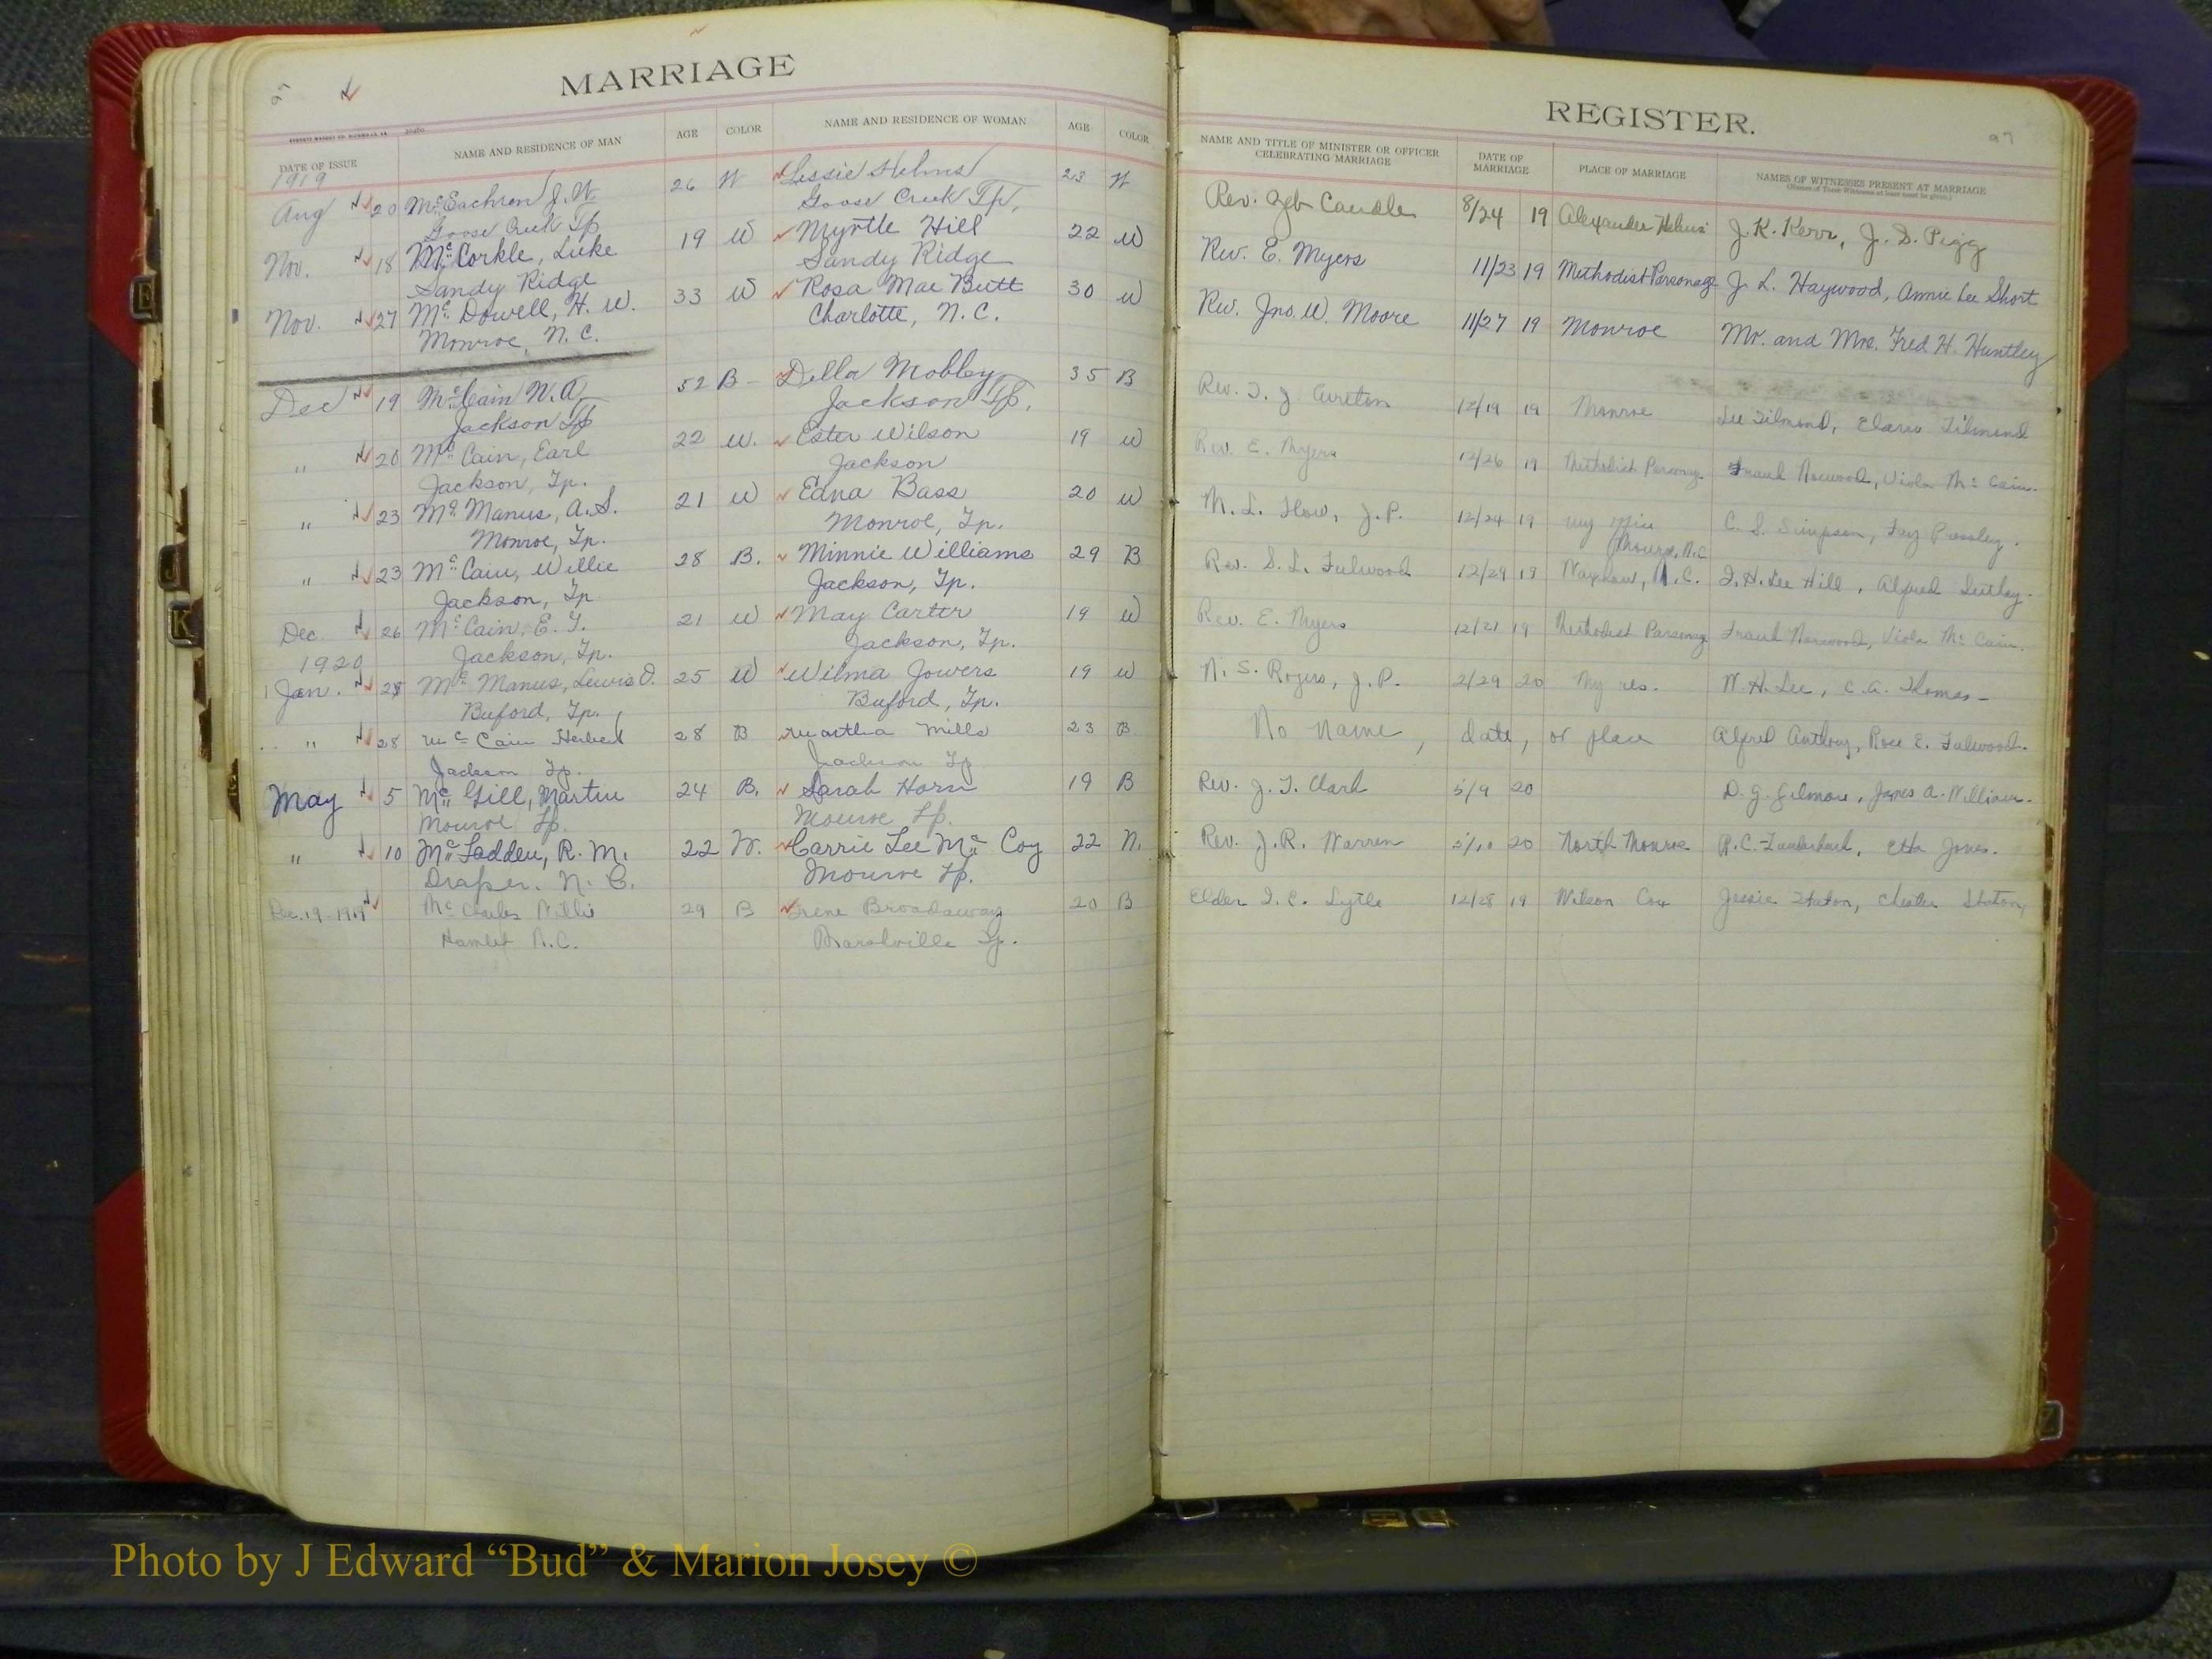 MARRIAGE
DATE OF ISSUE NAME AND RESIDENCE OF MAN AGE COLOR NAME AND RESIDENCE OF WOMAN AGE COLOR
1919
Aug 20 McEachren J. W. 26 W Lessie Helms 23 W
Goose Creek Tp Goose Creek Tp,
Nov. 18 McCorkle, Luke 19 W Myrtle Hill 22 W
Sandy Ridge Sandy Ridge
Nov. 27 McDowell, H. W. 33 W Rosa Mae Butt 30 W
Monroe, N.C. Charlotte, N.C.
Dec 19 McCain W. A. 52 B Della Mobley 35 B
Jackson Tp Jackson Tp.
" 20 McCain, Earl 22 W. Ester Wilson 19 W
Jackson, Tp. Jackson
" 23 McManus, A.S. 21 W Edna Bass 20 W
Monroe, Tp. Monroe, Tp.
" 23 McCain, Willie 28 B. Minnie Williams 29 B
Jackson, Tp Jackson, Tp.
Dec. 26 McCain, E. T. 21 W May Carter 19 W
Jackson, Tp. Jackson, Tp.
1920
Jan. 28 McManus, Lewis O. 25 W Wilma Jowers 19 W
Buford, Tp. Buford, Tp.
" 28 McCain Herbert 28 B Martha Mills 23 B
Jackson Tp. Jackson Tp
May 5 McGill, Martin 24 B. Sarah Horn 19 B
Monroe Tp. Monroe Tp.
" 10 McFadden, R. M. 22 W. Carrie Lee McCoy 22 W.
Draper. N. C. Monroe Tp.
Dec. 19-1919 Willie 29 B Irene Broadaway 20 B
Hamlet N.C. Tp.
REGISTER.
97
NAME AND TITLE OF MINISTER OR OFFICER CELEBRATING MARRIAGE DATE OF MARRIAGE PLACE OF MARRIAGE NAMES OF WITNESSES PRESENT AT MARRIAGE
(Names of Three Witnesses at least must be given.)
Rev. Zeb Caudle 8/24 19 Alexander Helms J. K. Kerr, J. S. Pigg
Rev. E. Myers 11/23 19 Methodist Parsonage J. L. Haywood, Annie Lee Short
Rev. Jno. W. Moore 11/27 19 Monroe Mr. and Mrs. Fred H. Huntley
Rev. T. J. Cureton 12/19 19 Monroe Lee Tilmond, Tilmond
Rev. E. Myers 12/26 19 Methodist Parsonage Frank Norwood, Viola McCain.
M. L. Flow, J.P. 12/24 19 my C. S. Simpson, Pressley.
Monroe, N.C.
Rev. S. L. Fulwood 12/29 19 Waxhaw, N.C. Lee Hill, Alfred
Rev. E. Myers 12/21 19 Methodist Parsonage Frank Norwood, Viola McCain.
N. S. Rogers, J.P. 2/29 20 My res. W. H. Lee, C. A. Thomas
No name, date, or place Alfred Anthony, Rose E. Fulwood.
Rev. J. T. Clark 5/9 20 D. G. Gilmore, James A.
Rev. J. R. Warren 5/10 20 North Monroe R. C. Etta Jones.
Elder I. E. Lytle 12/28 19 Wilson Cox Jessie Staton, Chester Staton,
E
J
K
Photo by J Edward “Bud” & Marion Josey ©